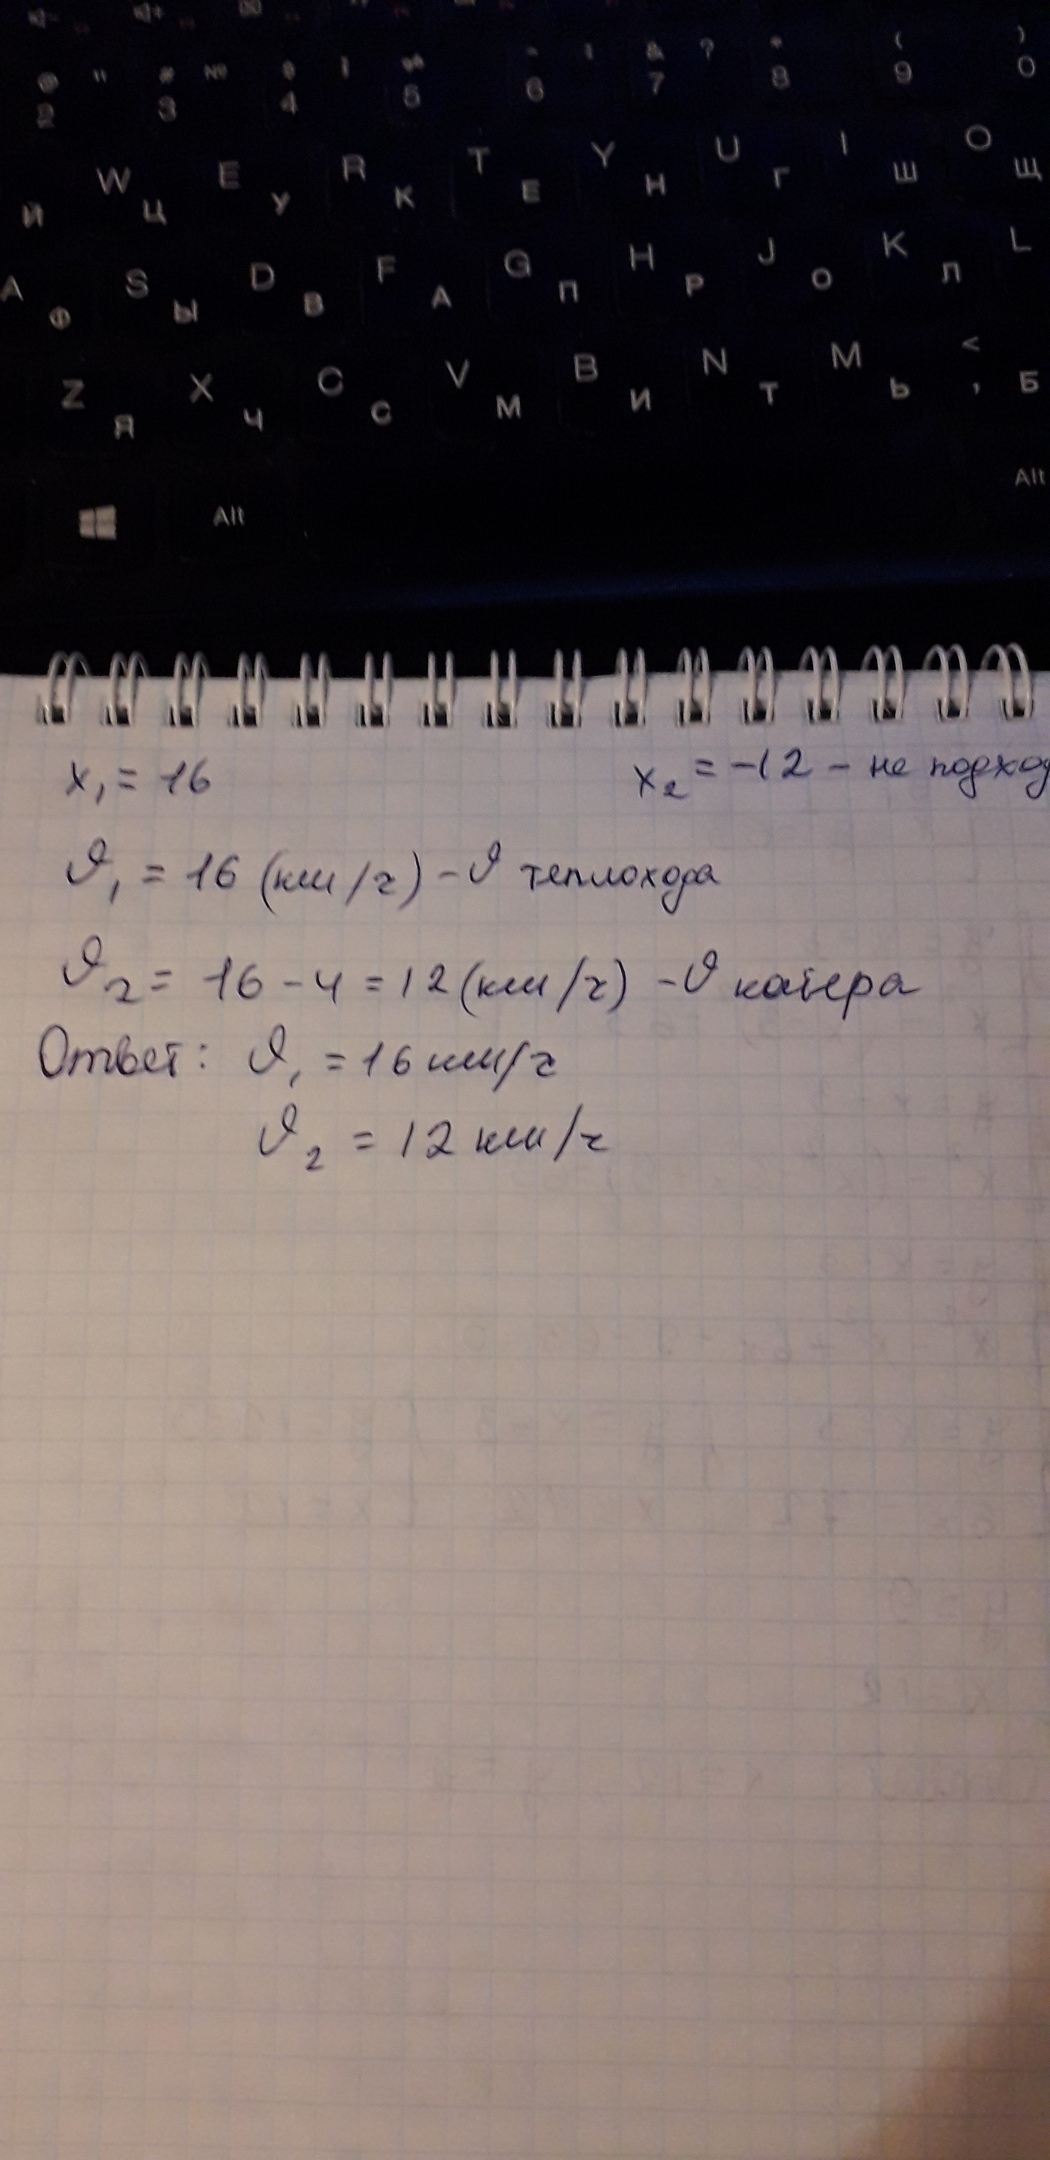 @ " # № $ % ^ : & ? * ( )
2 3 4 5 6 7 8 9 0
W E R T Y U I O
Й Ц У К Е Н Г Ш Щ
A S D F G H J K L
Ф Ы В А П Р О Л
Z X C V B N M <
Я Ч С М И Т Ь , Б
Alt Alt
x₁ = 16 x₂ = -12 - не подход
υ₁ = 16 (км/ч) - υ теплохода
υ₂ = 16 - 4 = 12 (км/ч) - υ катера
Ответ: υ₁ = 16 км/ч
υ₂ = 12 км/ч